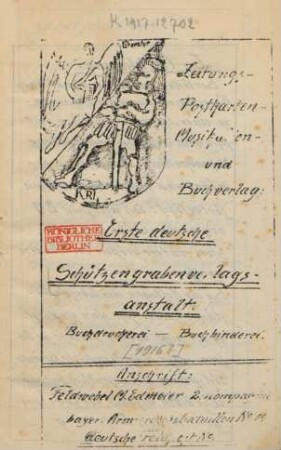 K 1917.12702
Zeitungs-
Postkarten-
Musikalien-
und
Buchverlag:
KÖNIGLICHE
BIBLIOTHEK
BERLIN
Erste deutsche
Schützengrabenverlags-
anstalt.
Buchdruckerei — Buchbinderei.
[1916?]
Anschrift:
Feldwebel 2. Kompanie
bayer. Arm No
deutsche No